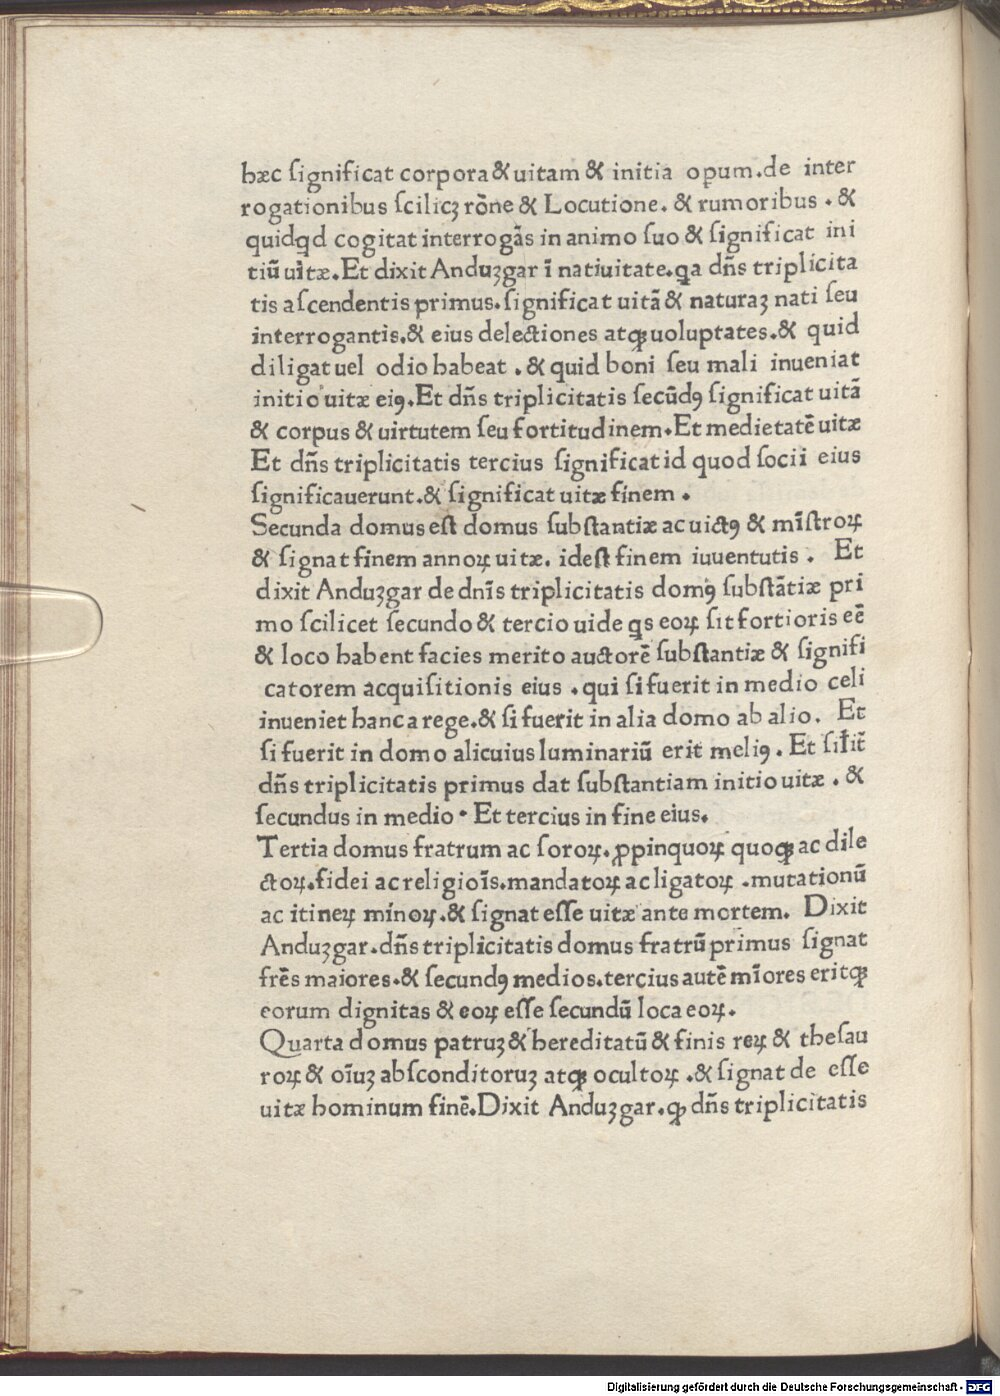 hæc ſignificat corpora & uitam & initia opum. de inter
rogationibus ſcilicꝫ rōne & Locutione. & rumoribus . &
quidqd cogitat interrogās in animo ſuo & ſignificat ini
tiū uitæ. Et dixit Anduꝫgar ī natiuitate. qa dn̄s triplicita
tis aſcendentis primus. ſignificat uitā & naturaꝫ nati ſeu
interrogantis. & eius delectiones atqꝫ uoluptates. & quid
diligat uel odio habeat . & quid boni ſeu mali inueniat
initio uitæ eiꝯ. Et dn̄s triplicitatis ſecūdꝯ ſignificat uitā
& corpus & uirtutem ſeu fortitudinem. Et medietatē uitæ
Et dn̄s triplicitatis tercius ſignificat id quod ſocii eius
ſignificauerunt. & ſignificat uitæ finem .
Secunda domus eſt domus ſubſtantiæ ac uictꝯ & mīſtroꝝ
& ſignat finem annoꝝ uitæ. ideſt finem iuuentutis . Et
dixit Anduꝫgar de dnīs triplicitatis domꝯ ſubſtātiæ pri
mo ſcilicet ſecundo & tercio uide qs eoꝝ ſit fortioris eē
& loco habent facies merito auctorē ſubſtantiæ & ſignifi
catorem acquiſitionis eius . qui ſi fuerit in medio celi
inueniet hanc a rege. & ſi fuerit in alia domo ab alio. Et
ſi fuerit in domo alicuius luminariū erit meliꝯ. Et ſil̄it̄
dn̄s triplicitatis primus dat ſubſtantiam initio uitæ . &
ſecundus in medio . Et tercius in fine eius.
Tertia domus fratrum ac ſoroꝝ. ꝓpinquoꝝ quoqꝫ ac dile
ctoꝝ. fidei ac religioīs. mandatoꝝ ac ligatoꝝ . mutationū
ac itineꝝ minoꝝ. & ſignat eſſe uitæ ante mortem. Dixit
Anduꝫgar. dn̄s triplicitatis domus fratrū primus ſignat
frēs maiores. & ſecundꝯ medios. tercius autē mīores eritqꝫ
eorum dignitas & eoꝝ eſſe ſecundū loca eoꝝ.
Quarta domus patruꝫ & hereditatū & finis reꝝ & theſau
roꝝ & oīuꝫ abſconditoruꝫ atqꝫ ocultoꝝ . & ſignat de eſſe
uitæ hominum finē. Dixit Anduꝫgar. qꝫ dn̄s triplicitatis
Digitalisierung gefördert durch die Deutsche Forschungsgemeinschaft - DFG